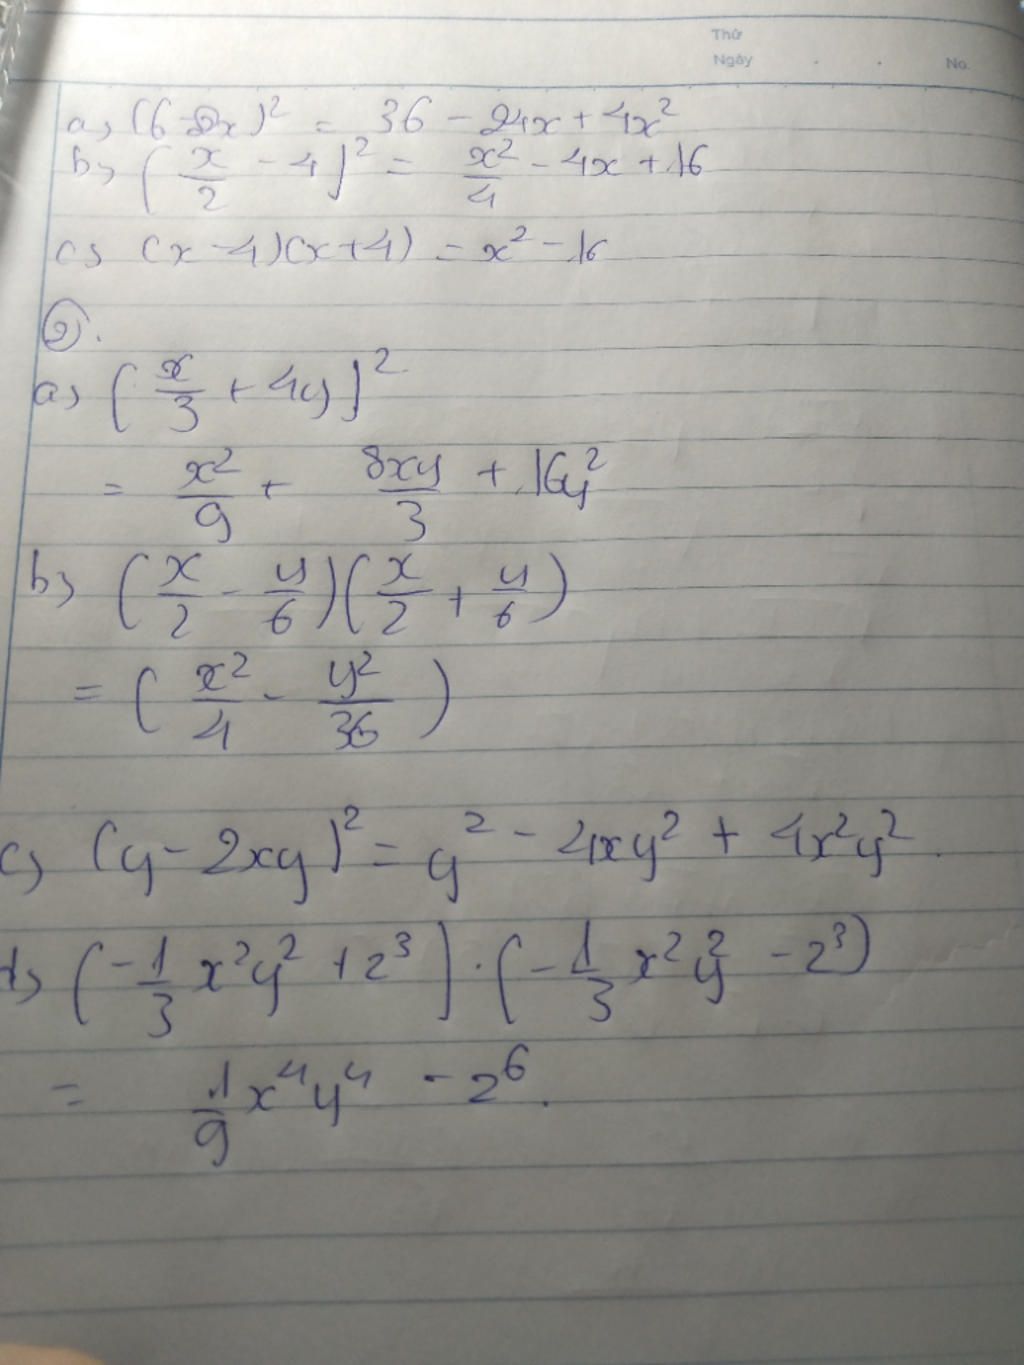 Thứ
Ngày . . No.
a, (6-2x)² = 36 - 24x + 4x²
b, (x/2 - 4)² = x²/4 - 4x + 16
c, (x-4)(x+4) = x² - 16
②.
a, (x/3 + 4y)²
= x²/9 + 8xy/3 + 16y²
b, (x/2 - y/6)(x/2 + y/6)
= (x²/4 - y²/36)
c, (y - 2xy)² = y² - 4xy² + 4x²y².
d, (-1/3 x²y² + 2³).(-1/3 x²y² - 2³)
= 1/9 x⁴y⁴ - 2⁶.